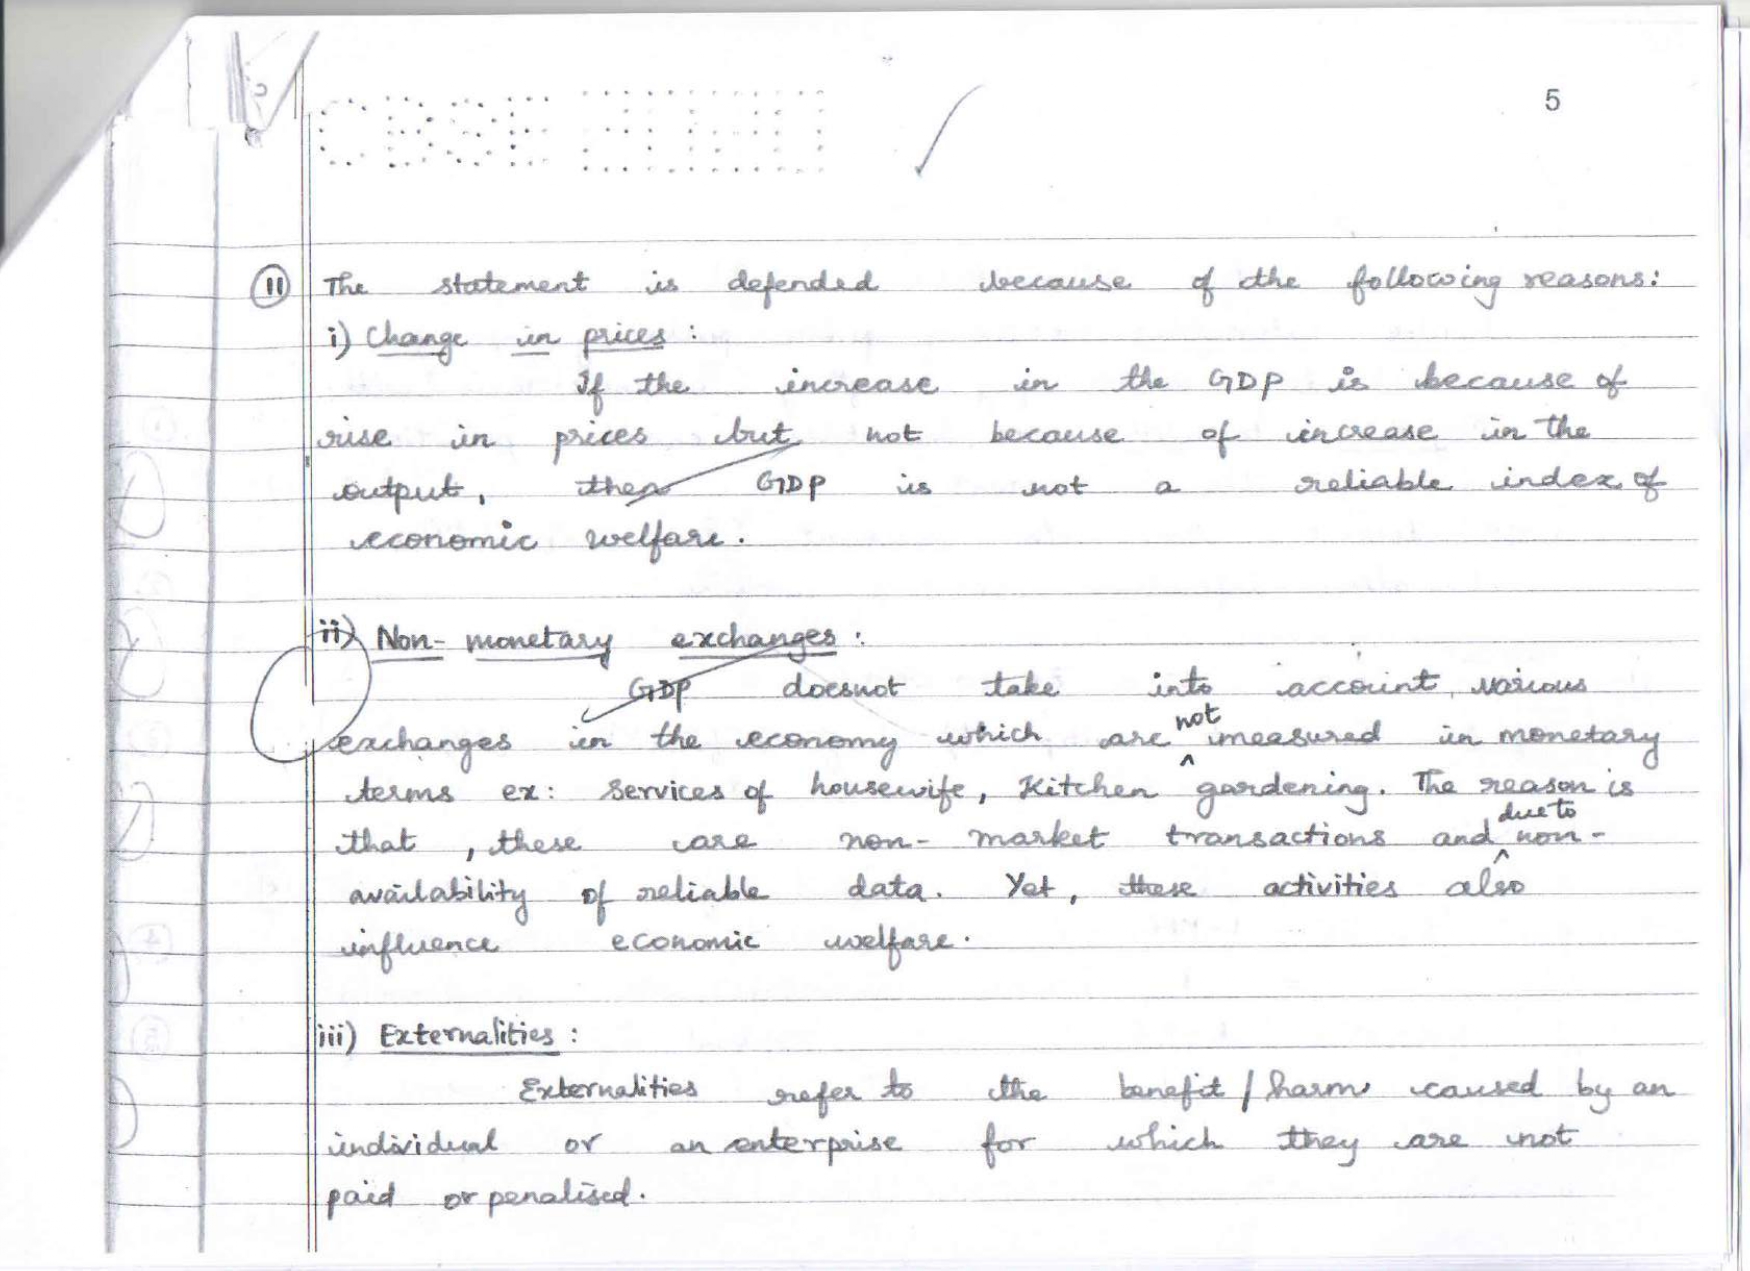 5
CBSE
11 The statement is defended because of the following reasons:
i) Change in prices :
If the increase in the GDP is because of
rise in prices but not because of increase in the
output, then GDP is not a reliable index of
economic welfare.
ii) Non- monetary exchanges :
GDP doesnot take into account, various
exchanges in the economy which are not measured in monetary
terms ex: Services of housewife, Kitchen gardening. The reason is
that , these are non- market transactions and due to non-
availability of reliable data. Yet, these activities also
influence economic welfare.
iii) Externalities :
Externalities refer to the benefit / harm caused by an
individual or an enterprise for which they are not
paid or penalised.